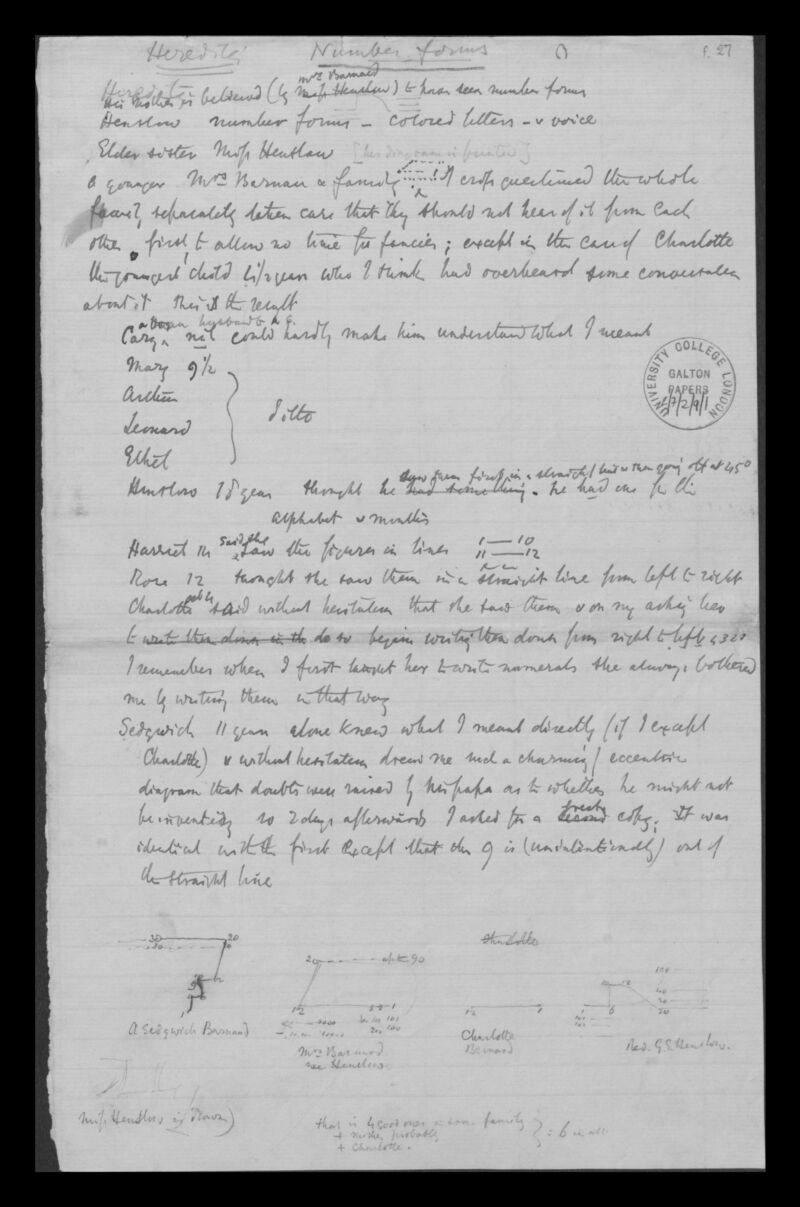 Heredity Number forms f. 27
Heredity
Mrs Barnard
His mother is believed (by Miss Henslow) to have seen number forms
Henslow number forms - colored letters - & voice
Elder sister Miss Henslow [her diagram is printed]
a younger Mrs Barnard & family I cross questioned the whole
family separately taken care that they should not hear of it from each
other, first, to allow no time for fancies; except in the case of Charlotte
the youngest child 4 1/2 years who I think had overheard some conversation
about it this is the result
husband
Cary nil could hardly make him understand what I meant
Mary 9 1/2
Arthur
Leonard
Ethel
ditto
saw them first in a straight line & then going off at 45°
Henslow 18 years thought he had something. he had one for the
alphabet & months
Harriet 12 said she saw the figures in lines 1 — 10
11 — 12
Rose 12 thought she saw them in a straight line from left to right
Charlotte said without hesitation that she saw them & on my asking her
to write them down in the do so begins writing them down from right to left 4321
I remember when I first taught her to write numerals she always bothered
me by writing them in that way
Sedgwick 11 years alone knew what I meant directly (if I except
Charlotte) & without hesitation drew me such a charming / eccentric
diagram that doubts were raised by his papa as to whether he might not
be inventing so 2 days afterwards I asked for a second copy; It was
fresh
identical with the first except that the 9 is (unintentionally) out of
the straight line
30 20
A Sedgwick Barnard
20 up to 90
12 1
1000 101
200 100
Mrs Barnard
née Henslow
Charlotte
12 1
Charlotte
Barnard
100
20
1 6
Revd. G. S. Henslow.
Miss Henslow is drawn)
that is 4 good ones in same family
+ mother probably
+ Charlotte.
= 6 in all
UNIVERSITY COLLEGE LONDON
GALTON
PAPERS
2/9/1